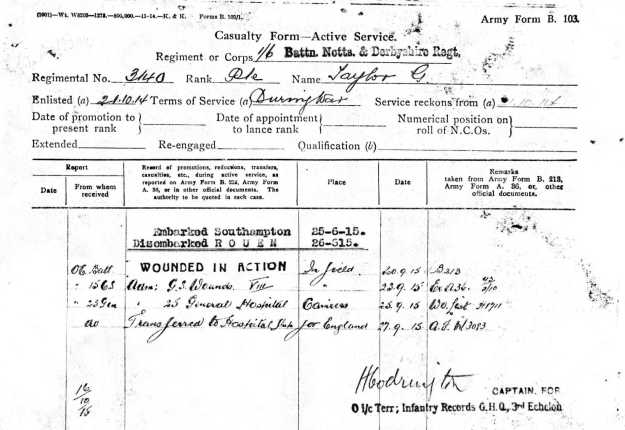 (3901)—Wt. W8203—1278.—500,000.—11-14.—K. & K. Forms B. 103/1.
Army Form B. 103.
Casualty Form—Active Service.
Regiment or Corps 1/6 Battn. Notts. & Derbyshire Regt.
Regimental No. 3140 Rank Pte Name Taylor G.
Enlisted (a) 21.10.14 Terms of Service (a) During War Service reckons from (a) .10.14
Date of promotion to present rank Date of appointment to lance rank Numerical position on roll of N.C.Os.
Extended Re-engaged Qualification (b)
Report
Date From whom received
Record of promotions, reductions, transfers, casualties, etc., during active service, as reported on Army Form B. 213, Army Form A. 36, or in other official documents. The authority to be quoted in each case.
Place
Date
Remarks
taken from Army Form B. 213, Army Form A. 36, or other official documents.
Embarked Southampton 25-6-15.
Disembarked ROUEN 26-615.
OC Batt WOUNDED IN ACTION In field 20.9.15 B213
" 1 S C S Adm: G.S. Wounds. VIII " 22.9.15 Ex A36.
" 23 Gen " 23 General Hospital Camiers 25.9.15 Wo. List H1711
do Transferred to Hospital Ship for England 27.9.15 A.F. W3083
16/10/15
CAPTAIN, FOR
O i/c Terr; Infantry Records G.H.Q. 3rd Echelon